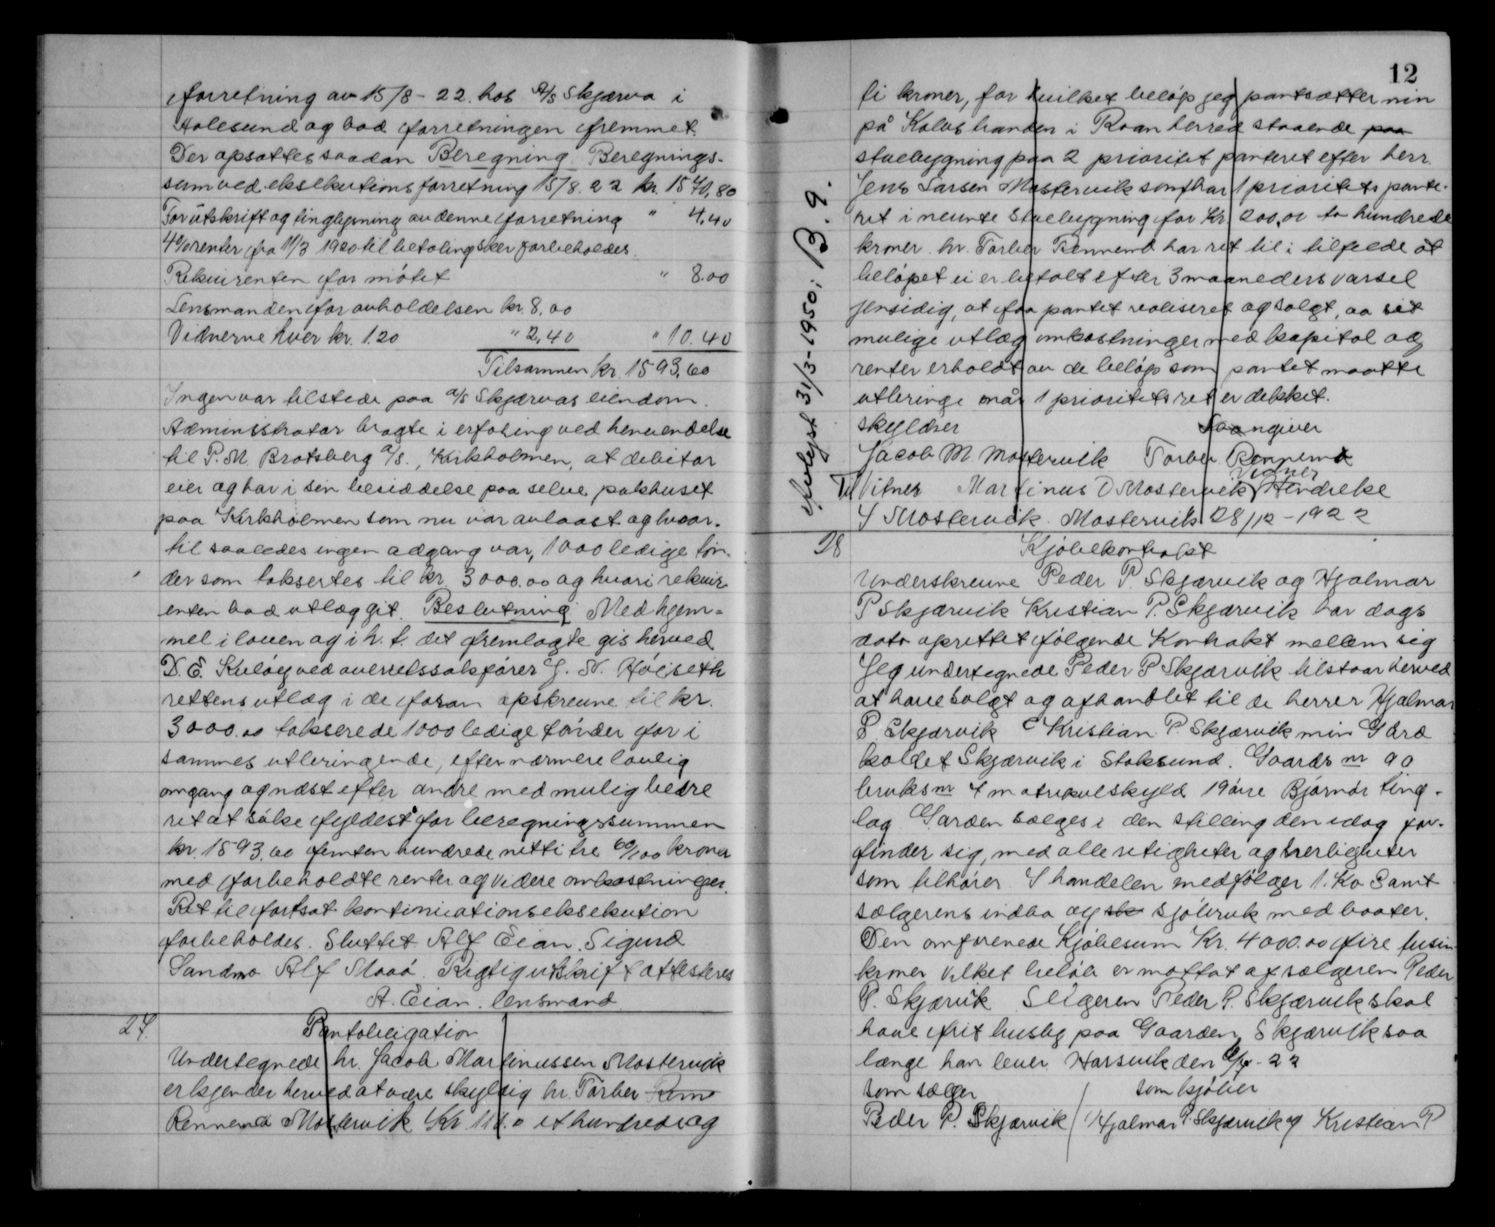 forretning av 15/8-22. hos A/S Skjærva i
Aalesund og bad forretningen fremmet.
Der opsattes saadan Beregning. Beregnings-
sum ved eksekutionsforretning 15/8.22 kr. 1570,80
For utskrift og tinglysning av denne forretning " 4,40
4% renter fra 11/3 1920 til betaling sker forbeholdes
Rekvirenten for møtet " 8.00
Lensmanden for avholdelsen kr. 8,00
Vidnerne hver kr. 1.20 " 2,40 " 10.40
Tilsammen kr 1593.60
Ingen var tilstede paa a/s Skjærvas eiendom.
Administrator bragte i erfaring ved henvendelse
til P. M. Brotsberg a/s., Kirkholmen, at debitor
eier og har i sin besiddelse paa selve pakhuset
paa Kirkholmen som nu var avlaast og hvor-
til saaledes ingen adgang var, 1000 ledige tøn-
der som taksertes til kr. 3000.00 og hvori rekvir-
enten bad utlæg git. Beslutning Med hjem-
mel i loven og i h. t. det fremlagte gis herved
D. E. Kuløy ved overretssakfører J. N. Høiseth
rettens utlæg i de foran opskrevne til kr.
3000.00 takserede 1000 ledige tønder for i
sammes utbringende, efter nærmere lovlig
omgang og næst efter andre med mulig bedre
ret at søke fyldest for beregningssummen
kr. 1593.60 femten hundrede nitti tre 60/100 kroner
med forbeholdte renter og videre omkostninger.
Ret til fortsat kontinuationseksekution
forbeholdes. Sluttet Alf Eian. Sigurd
Sandmo Alf Moaø. Rigtig utskrift attesteres
A. Eian. lensmand
27. Pantobligation
Undertegnede hr. Jacob Martinussen Mostervik
erkjender herved at være skyldig hr. Torber
Rennemd Mostervik Kr. 110.0 et hundred og
12
ti kroner, for hvilket beløp jeg pantsætter min
på Kalvstranden i Roan herred staaende paa
stuebygning paa 2 prioritet panteret efter herr.
Jens Larsen Mostervik som har 1 prioritets pante-
ret i nevnte stuebygning for Kr 200,00 to hundrede
kroner. hr. Torber Rennemd har ret til i tilfelde at
beløpet ei er betalt efter 3 maaneders varsel
jensidig, at faa pantet realiseret og solgt, aa sit
mulige utlæg omkostninger med kapital og
renter erholdt av de beløp som pantet maatte
utbringe når 1 prioritets ret er dekket.
skyldner Laangiver
Jacob M. Mostervik Torber Rennemd
Til Vitner Martinus D Mostervik Vidner Hendrikke
J Mostervik. Mostervik 28/12-1922
avlyst 31/3-1950; B. 9.
28 Kjøbekontrakt
Underskrevne Peder P. Skjærvik og Hjalmar
P Skjærvik Kristian P. Skjærvik har dags
dato oprettet følgende Kontrakt mellem sig
Jeg undertegnede Peder P Skjærvik tilstaar herved
at have solgt og afhandlet til de herrer Hjalmar
P. Skjærvik & Kristian P. Skjærvik min Gård
kaldet Skjærvik i Stoksund. Gaards nr 90
bruks nr 4 matrikulskyld 19 øre Bjørnør ting-
lag. Garden sælges i den stilling den idag for-
finder sig, med alle retigheter og herligheter
som tilhører. I handelen medfølger 1. Ko Samt
sælgerens indbo og sjøbruk med baater.
Den omforenede Kjøbesum Kr. 4000.00 fire tusin
kroner vilket beløb er mottat af sælgeren Peder
P. Skjærvik Selgeren Peder P. Skjærvik skal
have frit husly paa Gaarden Skjærvik saa
længe han lever Harsvik den -22
som sælger som kjøber
Peder P. Skjærvik / Hjalmar P Skjærvik og Kristian P